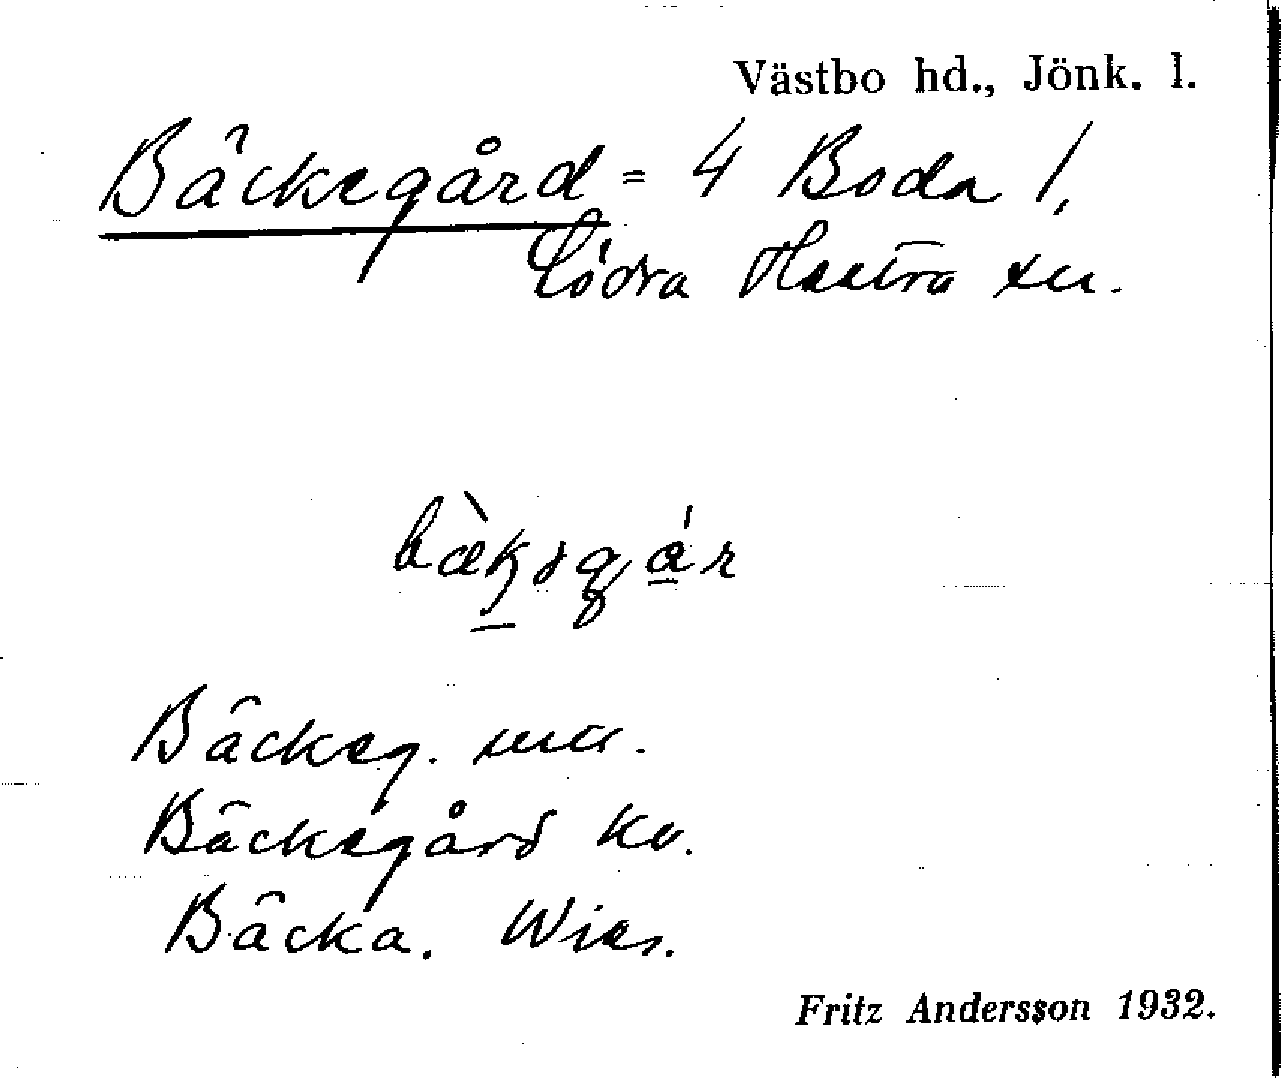 Västbo hd., Jönk. l.
Bäckegård = 4 Boda 1,
Södra Hestra sn.
Bäckeg.
Bäckegård kv.
Bäcka. Wies.
Fritz Andersson 1932.